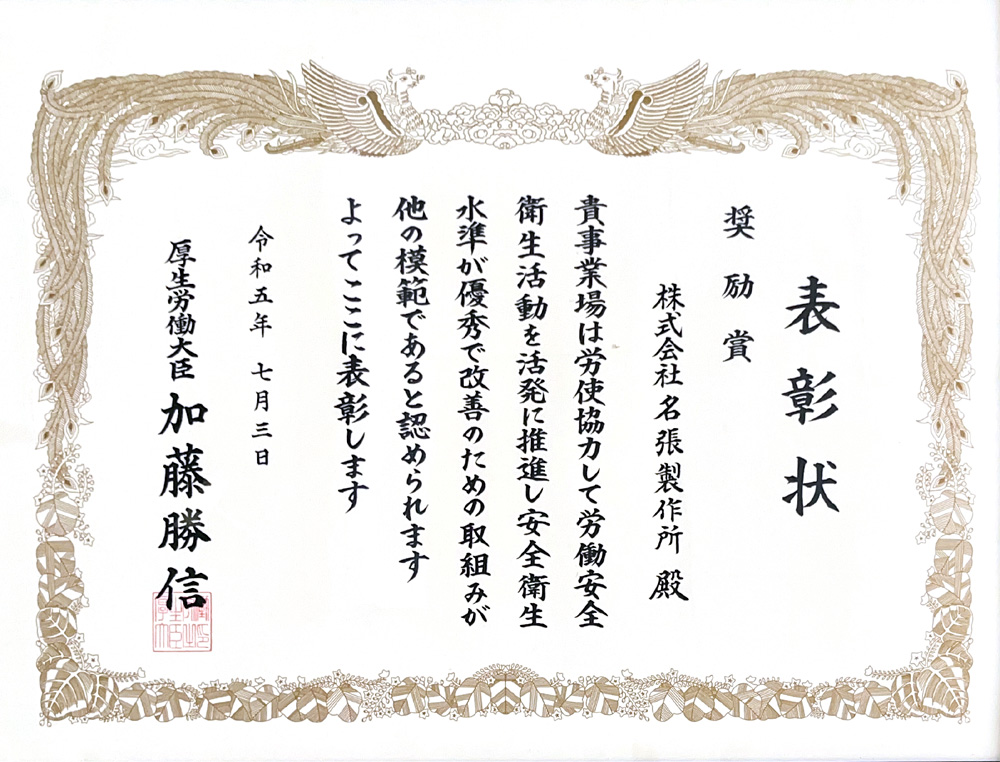 表彰状
奨励賞
株式会社名張製作所 殿
貴事業場は労使協力して労働安全
衛生活動を活発に推進し安全衛生
水準が優秀で改善のための取組みが
他の模範であると認められます
よってここに表彰します
令和五年 七月三日
厚生労働大臣 加藤勝信